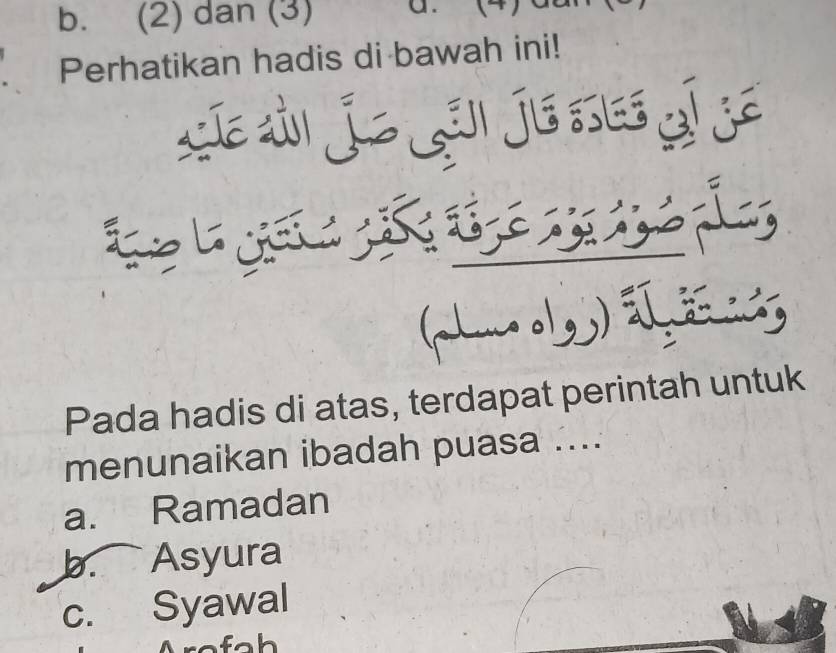 b. (2) dan (3)
Perhatikan hadis di bawah ini!
عَنْ أَبِي قَتَادَةَ قَالَ النَّبِي صَلَّى اللهُ عَلَيْهِ
وَسَلَّمَ صَوْمُ يَوْمِ عَرَفَةَ يُكَفِّرُ سَنَتَيْنِ مَا ضِيَةً
وَمُسْتَقْبِلَةً (رواه مسلم)
Pada hadis di atas, terdapat perintah untuk
menunaikan ibadah puasa ....
a. Ramadan
b. Asyura
c. Syawal
Arofah